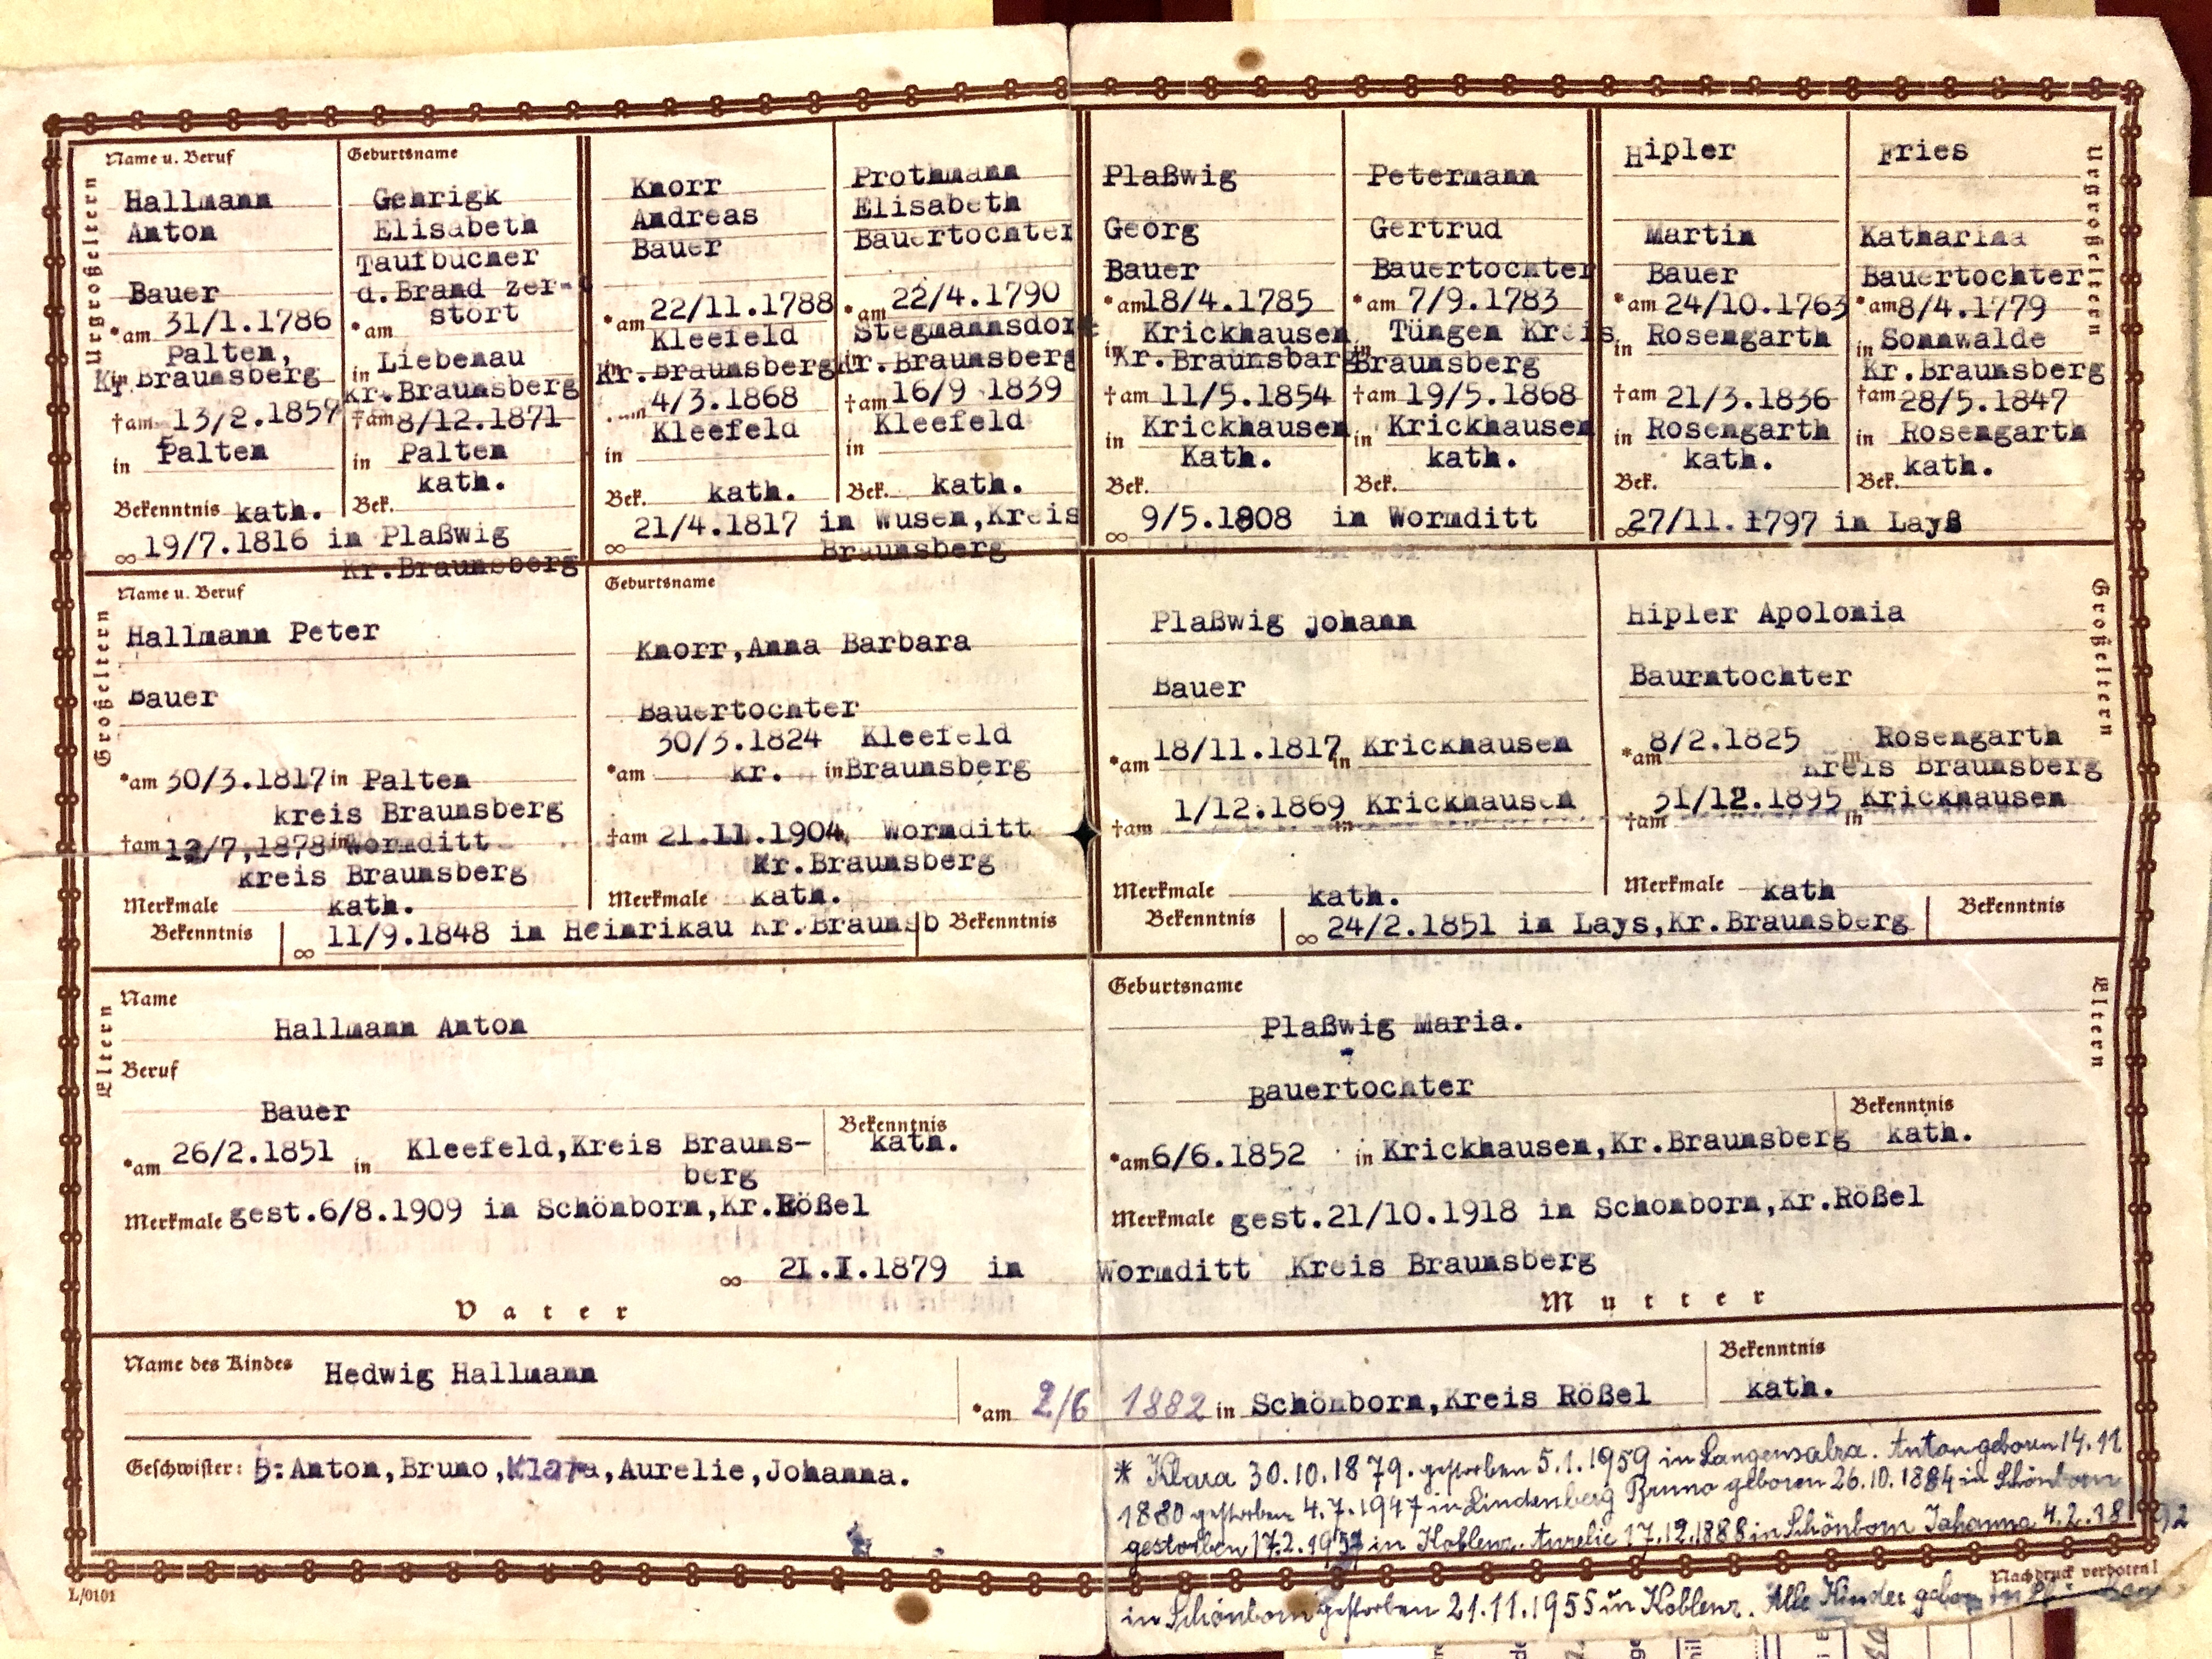 Urgroßeltern
Name u. Beruf
Hallmann
Anton
Bauer
*am 31/1.1786
Palten,
in Kr. Braunsberg
†am 13/2.1859
in Palten
Bekenntnis kath.
Geburtsname
Gehrigk
Elisabeth
Taufbücher
d.Brand zer-
stört
*am
in Liebenau
kr.Braunsberg
†am 8/12.1871
in Palten
kath.
Bek.
∞ 19/7.1816 in Plaßwig
Kr.Braunsberg
Knorr
Andreas
Bauer
*am 22/11.1788
Kleefeld
in Kr.Braunsberg
4/3.1868
Kleefeld
in
Bek. kath.
Prothmann
Elisabeth
Bauertochter
*am 22/4.1790
Stegmannsdorf
in Kr.Braunsberg
†am 16/9 1839
Kleefeld
in
Bek. kath.
∞ 21/4.1817 in Wusen,Kreis
Braunsberg
Plaßwig
Georg
Bauer
*am 18/4.1785
Krickhausen
in Kr.Braunsbarg
†am 11/5.1854
in Krickhausen
Kath.
Bek.
Petermann
Gertrud
Bauertochter
*am 7/9.1783
Tüngen Kreis
in Braunsberg
†am 19/5.1868
in Krickhausen
kath.
Bek.
∞ 9/5.1808 in Wormditt
Hipler
Martin
Bauer
*am 24/10.1763
in Rosengarth
†am 21/3.1836
in Rosengarth
kath.
Bek.
Fries
Katharina
Bauertochter
*am 8/4.1779
in Sonnwalde
Kr.Braunsberg
†am 28/5.1847
in Rosengarth
kath.
Bek.
∞ 27/11.1797 in Layß
Urgroßeltern
Großeltern
Name u. Beruf
Hallmann Peter
Bauer
*am 30/3.1817 in Palten
kreis Braunsberg
†am 12/7,1878 in Wormditt
kreis Braunsberg
Merkmale kath.
Bekenntnis
∞ 11/9.1848 in Heinrikau Kr.Braunsb
Geburtsname
Knorr,Anna Barbara
Bauertochter
30/3.1824 Kleefeld
*am kr. in Braunsberg
†am 21.11.1904, Wormditt
Kr.Braunsberg
Merkmale kath.
Bekenntnis
Plaßwig johann
Bauer
*am 18/11.1817 in Krickhausen
†am 1/12.1869 in Krickhausen
Merkmale kath.
Bekenntnis
∞ 24/2.1851 in Lays,Kr.Braunsberg
Hipler Apolonia
Baurntochter
*am 8/2.1825 in Rosengarth
Kreis Braunsberg
†am 31/12.1895 in Krickhausen
Merkmale kath
Bekenntnis
Großeltern
Eltern
Name
Hallmann Anton
Beruf
Bauer
Bekenntnis
kath.
*am 26/2.1851 in Kleefeld,Kreis Brauns-
berg
Merkmale gest.6/8.1909 in Schönborn,Kr.Rößel
Geburtsname
Plaßwig Maria.
Bauertochter
Bekenntnis
kath.
*am 6/6.1852 in Krickhausen,Kr.Braunsberg
Merkmale gest.21/10.1918 in Schonborn,Kr.Rößel
∞ 21.I.1879 in Wormditt Kreis Braunsberg
Vater
Mutter
Eltern
Name des Kindes Hedwig Hallmann
*am 2/6 1882 in Schönborn,Kreis Rößel
Bekenntnis
kath.
Geschwister: 5:Anton,Bruno,Klara,Aurelie,Johanna.
* Klara 30.10.1879. gestorben 5.1.1959 in Langensalza. Anton geboren 14.11
1880 gestorben 4.7.1947 in Lindenberg Bruno geboren 26.10.1884 in Schönborn
gestorben 17.2.1957 in Koblenz. Aurelie 17.12.1888 in Schönborn Johanna 4.2.1892
in Schönborn gestorben 21.11.1955 in Koblenz. Alle Kinder gebor. in
L/0101
Nachdruck verboten!